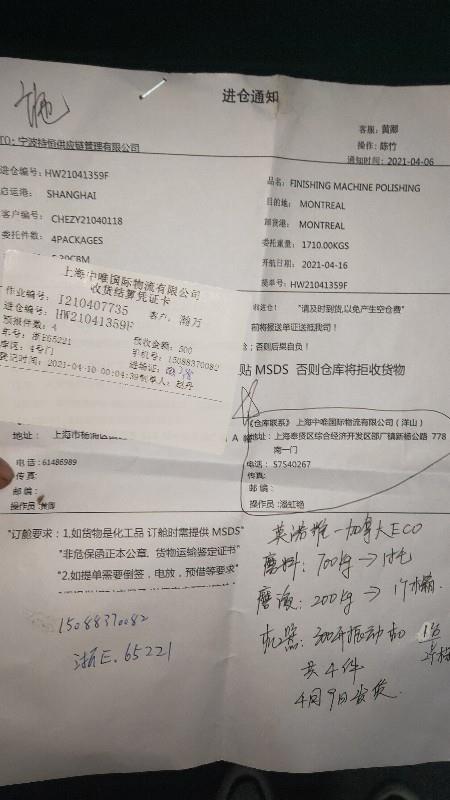 进仓通知
客服：黄卿
操作：陈竹
通知时间：2021-04-06
TO：宁波持恒供应链管理有限公司
进仓编号：HW21041359F
品名：FINISHING MACHINE POLISHING
启运港：SHANGHAI
目的地：MONTREAL
客户编号：CHEZY21040118
卸货港：MONTREAL
委托件数：4PACKAGES
委托重量：1710.00KGS
开航日期：2021-04-16
提单号：HW21041359F
上海中唯国际物流有限公司
收货结算凭证卡
作业编号：I210407735
客户：瀚万
进仓编号：HW21041359F
预报件数：4
预收金额：500
车号：浙E65221
手机号：15088370082
库区：4号门
进场证：
登记时间：2021-04-10 00:04:39
制单人：赵丹
"请及时到货,以免产生空仓费"
前将报送单证送抵我司！
否则后果自负！
贴 MSDS 否则仓库将拒收货物
地址：上海市杨浦区
电话：61486989
传真：
邮编：
操作员：黄卿
《仓库联系》上海中唯国际物流有限公司（洋山）
地址：上海奉贤区综合经济开发区邵厂镇新杨公路 778
南一门
电话：57540267
传真：
邮编：
操作员：潘虹艳
"订舱要求：1.如货物是化工品 订舱时需提供 MSDS"
"非危保函正本公章，货物运输鉴定证书"
"2.如提单需要倒签，电放，预借等要求"
15088370082
浙E.65221
英诺维－加拿大ECO
磨料：700kg →
磨液：200kg → 1个
机器：300升振动机 1台
共4件
4月9日发货.